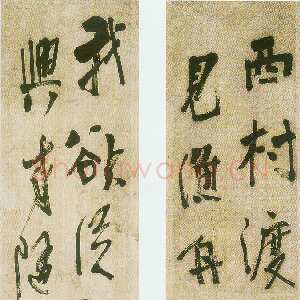 西村渡
見漁舟
我欲
興有